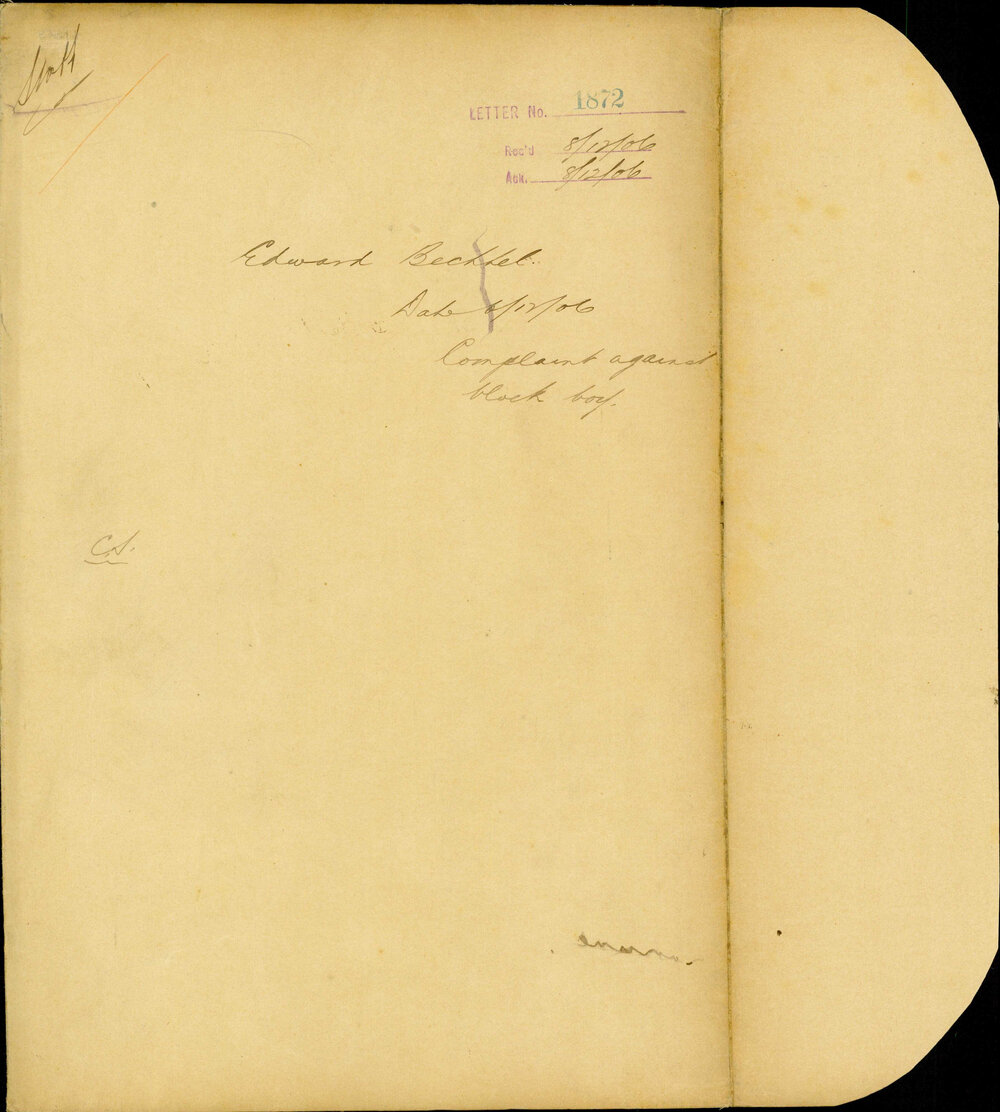 LETTER No. 1872
Rec'd 8/12/06
Ack. 8/12/06
Edward Bechtel.
Date 8/12/06
Complaint against
block boy.